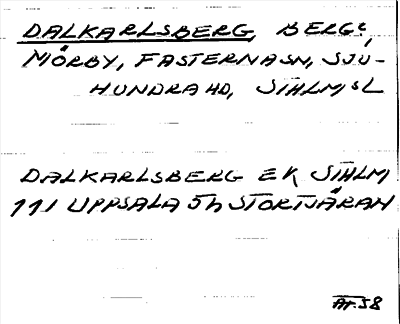 DALKARLSBERG, BERGS,
MÖRBY, FASTERNA SN, SJU-
HUNDRA HD, STHLMS L
DALKARLSBERG EK STHLM
111 UPPSALA 5h STORTJÄRAN
AT.58